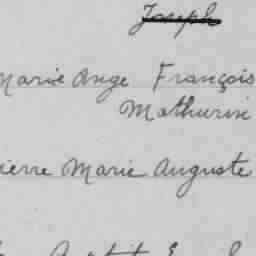 Joseph
Marie Ange François
Mathurin
Pierre Marie Auguste